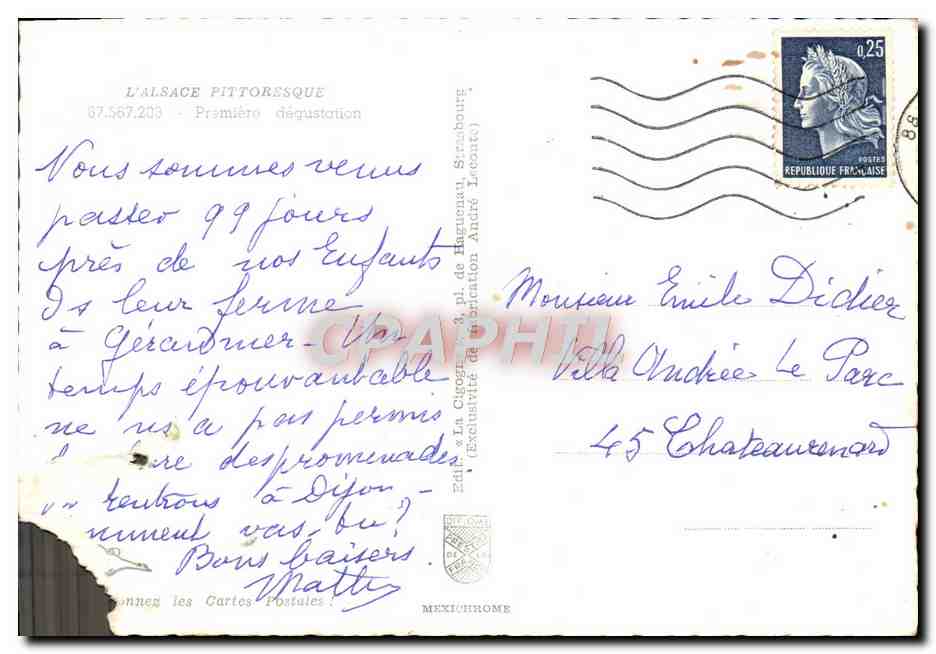 L'ALSACE PITTORESQUE
67.567.203 - Première dégustation
Nous sommes venus
passer 99 jours
près de nos Enfants
Ds leur ferme
à Gérardmer - Un
temps épouvantable
ne ns a pas permis
des promenades
rentrons à Dijon,
mment vas-tu?
Bons baisers
onnez les Cartes Postales !
Edit. « La Cigogne 3, pl. de Haguenau, Strasbourg
(Exclusivité de fabrication André Leconte)
MEXICHROME
0,25
POSTES
REPUBLIQUE FRANÇAISE
88
Monsieur Emile Didier
Villa Andrée Le Parc
45 Chateaurenard
CPAPHIL